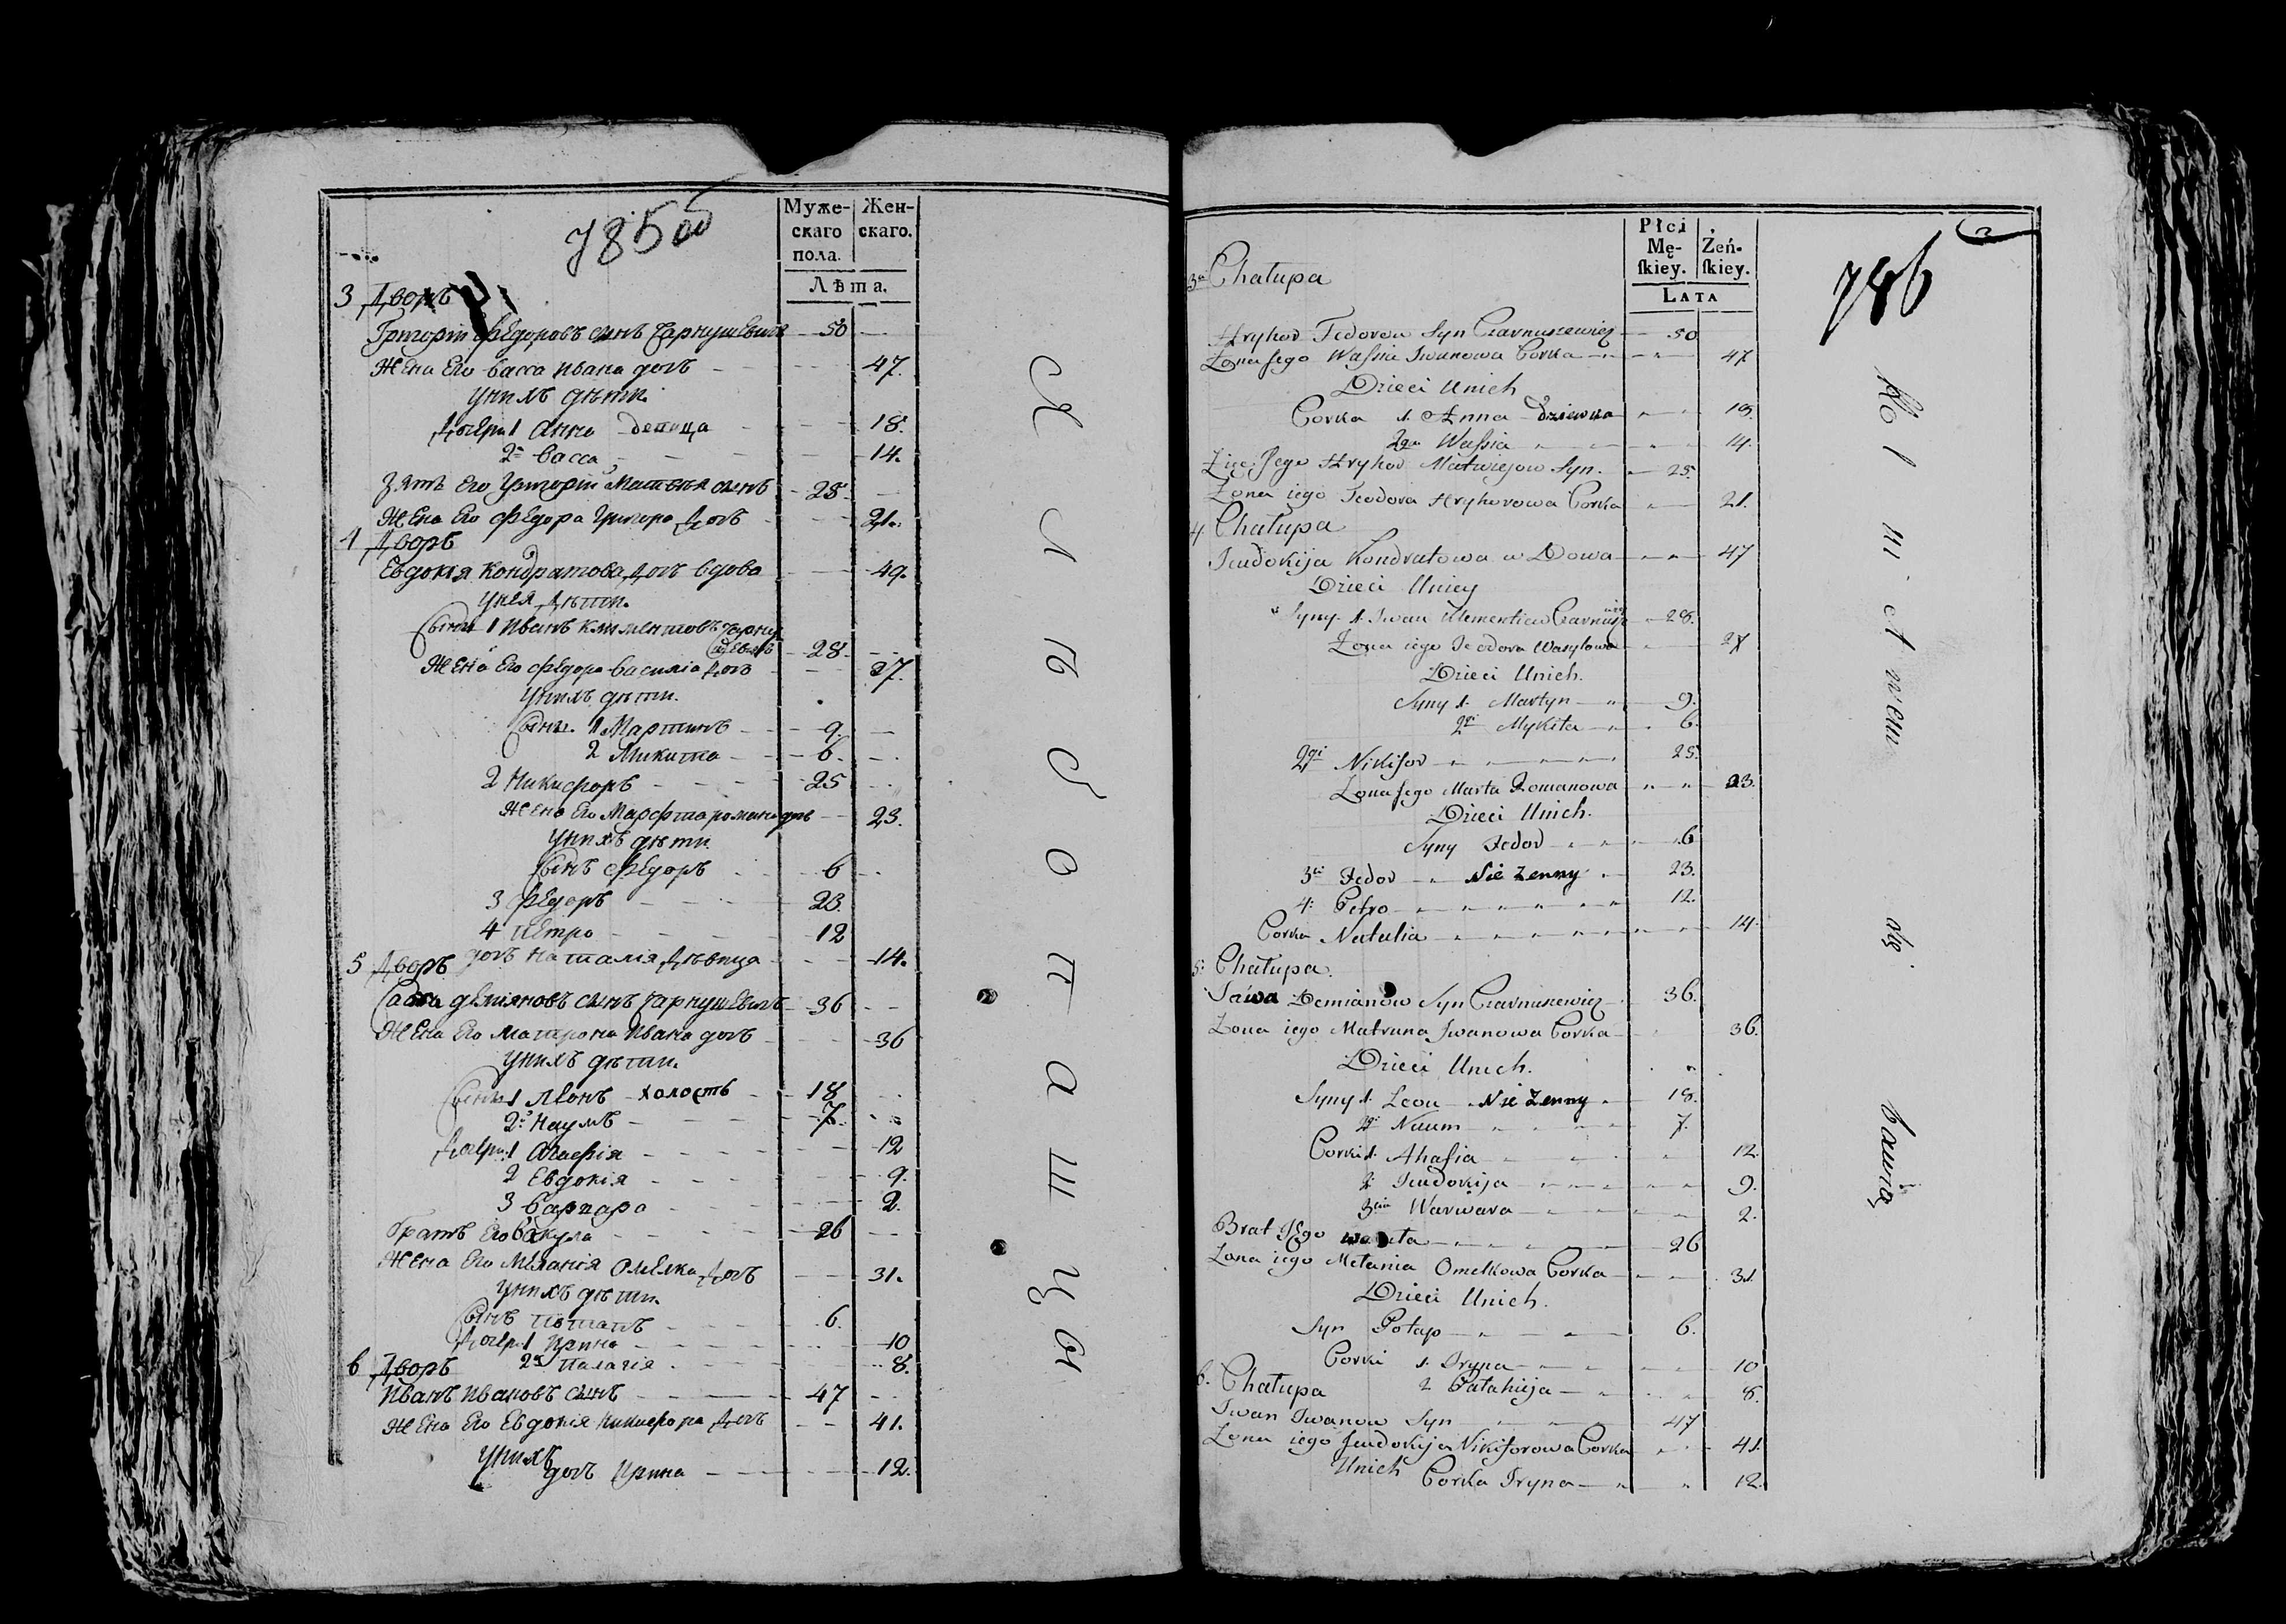 785 об
Муже-скаго пола.
Жен-скаго.
Лѣта.
3 Дворъ
Григорій Федоровъ сынъ Чарнушевичъ 50
Жена Его Васса Ивана дочь 47.
У нихъ дѣти
Дочери 1 Анна девица 18.
2я Васса 14.
Зять Его Григорій Матвѣя сынъ 28.
Жена Его Федора Григора дочь 21.
4 Дворъ
Евдокия Кондратова дочь вдова 49.
У нея дѣти.
Сыны 1 Иванъ Климентовъ Чарнушевичъ 28.
Жена Его Федора Василіа дочь 27.
У нихъ дѣти.
Сыны. 1 Мартинъ 9.
2 Микита 6.
2 Никифоръ 25
Жена Его Марфта Романа дочь 23.
У нихъ дѣти
Сынъ Федоръ 6
3 Федоръ 23
4 Петро 12
дочь Наталія дѣвица 14.
5 Дворъ
Савва Деміяновъ сынъ Чарнушевичъ 36
Жена Его Матрона Ивана дочь 36
У нихъ дѣти.
Сыны 1 Леонъ холостъ 18
2й Наумъ 7.
Дочери 1 Агафія 12
2 Евдокія 9.
3 Варвара 2.
Братъ Его Вакула 26
Жена Его Мелания Омелка дочь 31.
У нихъ дѣти.
Сынъ Потапъ 6.
Дочери 1 Ирина 10
2я Палагія 8.
6 Дворъ
Иванъ Ивановъ сынъ 47
Жена Его Евдокія Никифора дочь 41.
У нихъ
дочь Ирина 12.
Płci Mę-ſkiey.
Żeń-ſkiey.
Lata
3
786
3a Chałupa
Hryhor Fedorow Syn Czarnuszewicz 50
Żona Jego Waſsia Iwanowa Corka 47
Dzieci Unich
Corka 1. Anna Dziewka 18.
2ga Waſsia 14.
Zięć Jego Hryhor Matwiejow Syn. 25.
Żona iego Teodora Hryhorowa Corka 21.
4. Chałupa
Jeudokija Kondratowa wdowa 47
Dzieci Uniey
Syny 1. Iwan Klementiew Czarnusz 28.
Żona iego Teodora Wasylowa 27
Dzieci Unich.
Syny 1. Martyn 9.
2gi Mykita 6.
2gi Nikifor 25.
Żona Jego Marta Romanowa 23.
Dzieci Unich.
Syny Fedor 6
3ci Fedor Nie Zenny 23.
4. Petro 12.
Corka Natalia 14.
5. Chałupa.
Sawa Demianow Syn Czarnuszewicz 36.
Żona iego Matruna Iwanowa Corka 36.
Dzieci Unich.
Syny 1. Leon Nie Zenny 18.
2i Naum 7.
Corki 1. Ahafia 12.
2. Jeudokija 9.
3cia Warwara 2.
Brat Jego 26
Żona iego Mełania Omelkowa Corka 31.
Dzieci Unich.
Syn Potap 6.
Corki 1. Iryna 10
2 Pałahija 8.
6. Chałupa
Iwan Iwanow Syn 47
Żona iego Jeudokija Nikiforowa Corka 41.
Unich
Corka Iryna 12.